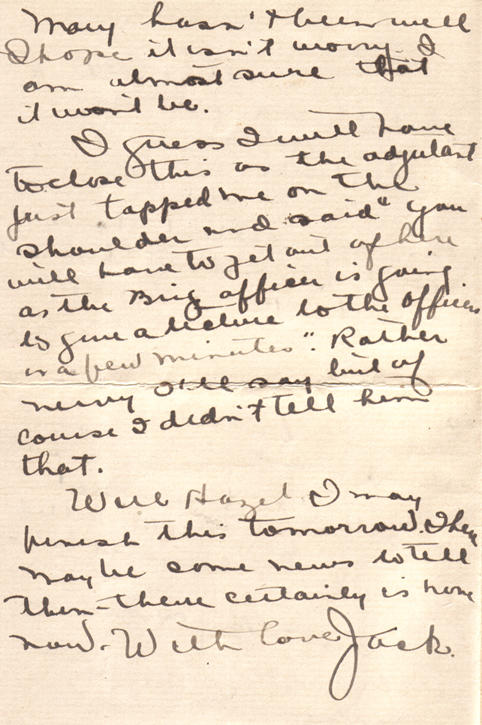 Mary hasn't been well
I hope it isn't worry. I
am almost sure that
it won't be.
I guess I will have
to close this as the adjutant
just tapped me on the
shoulder and said "you
will have to get out of here
as the Brig officer is going
to give a lecture to the officers
in a few minutes". Rather
nervy I'll say but of
course I didn't tell him
that.
Well Hazel I may
finish this tomorrow. Then
maybe some news to tell
then - there certainly is none
now. With love Jack.